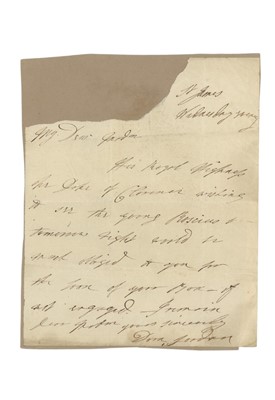 St James
Wednesday
My Dear
His Royal Highness
the Duke of Clarence wishing
to see the young Roscius
tomorrow night would be
much obliged to you for
the loan of your Box – if
not engaged I remain
yours sincerely
Dora Jordan